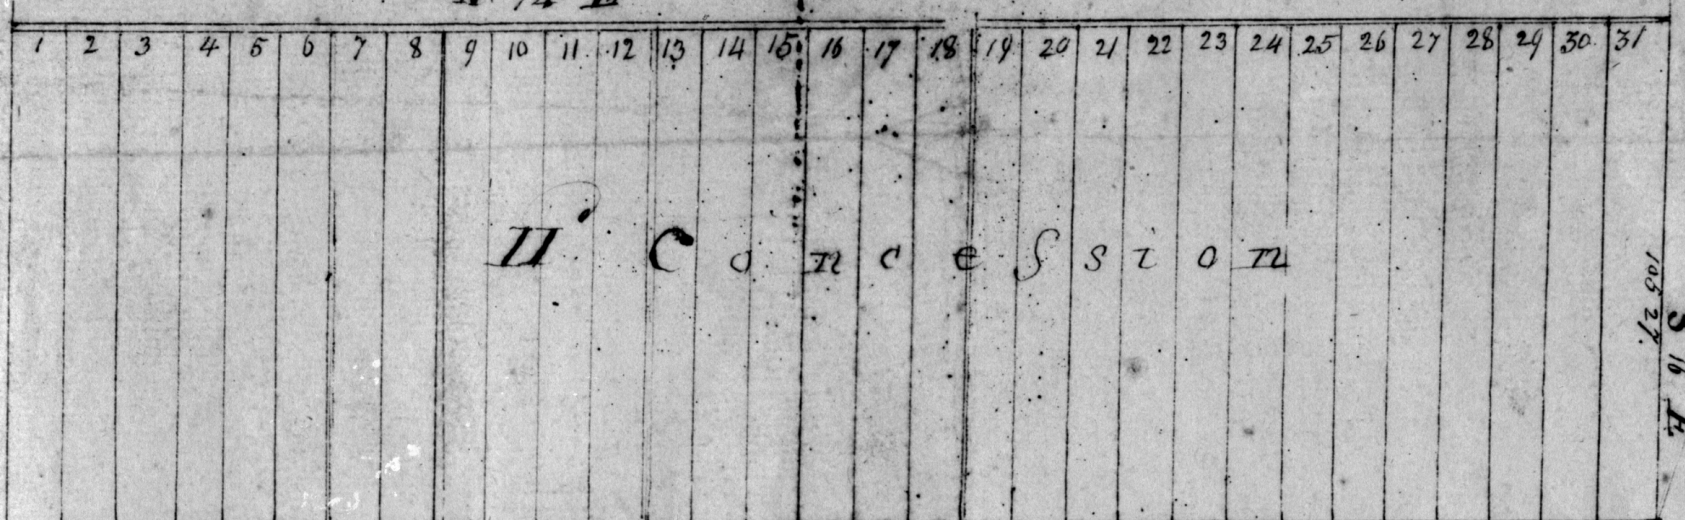 1 2 3 4 5 6 7 8 9 10 11 12 13 14 15 16 17 18 19 20 21 22 23 24 25 26 27 28 29 30 31
II Conceſsion
S 16 E